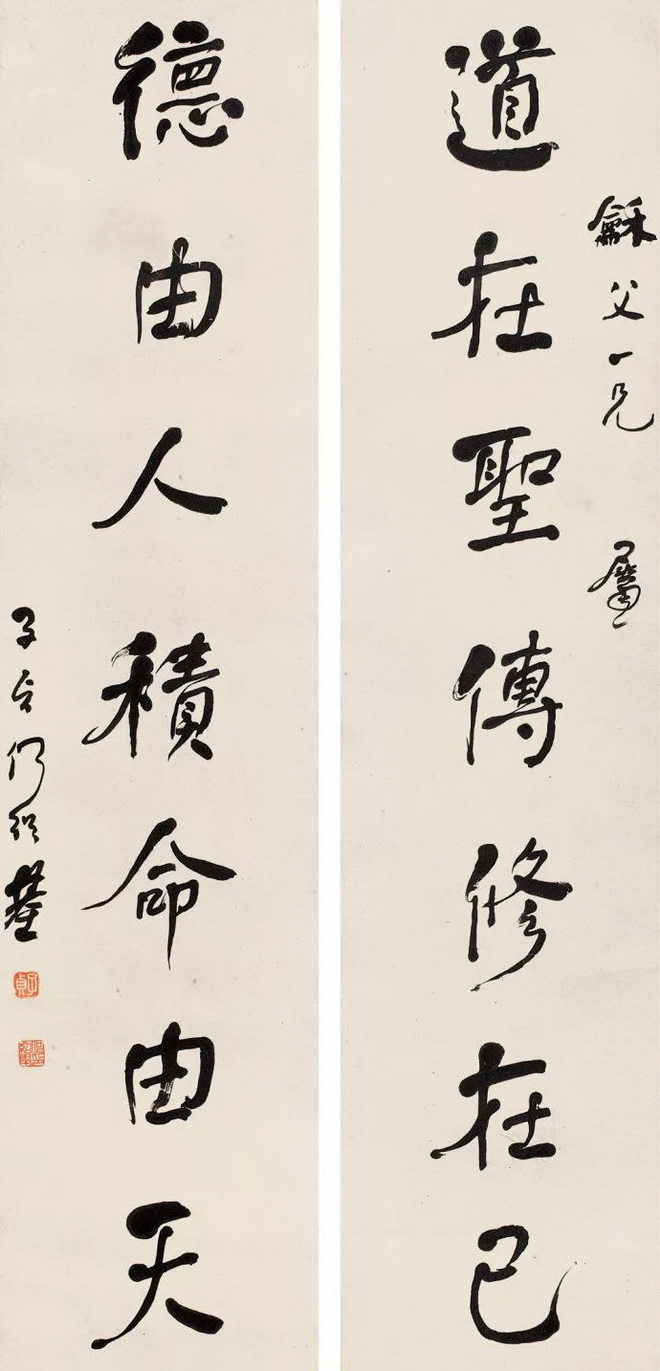 龢父一兄 屬
道在聖傳修在己
德由人積命由天
子貞何紹基
子貞